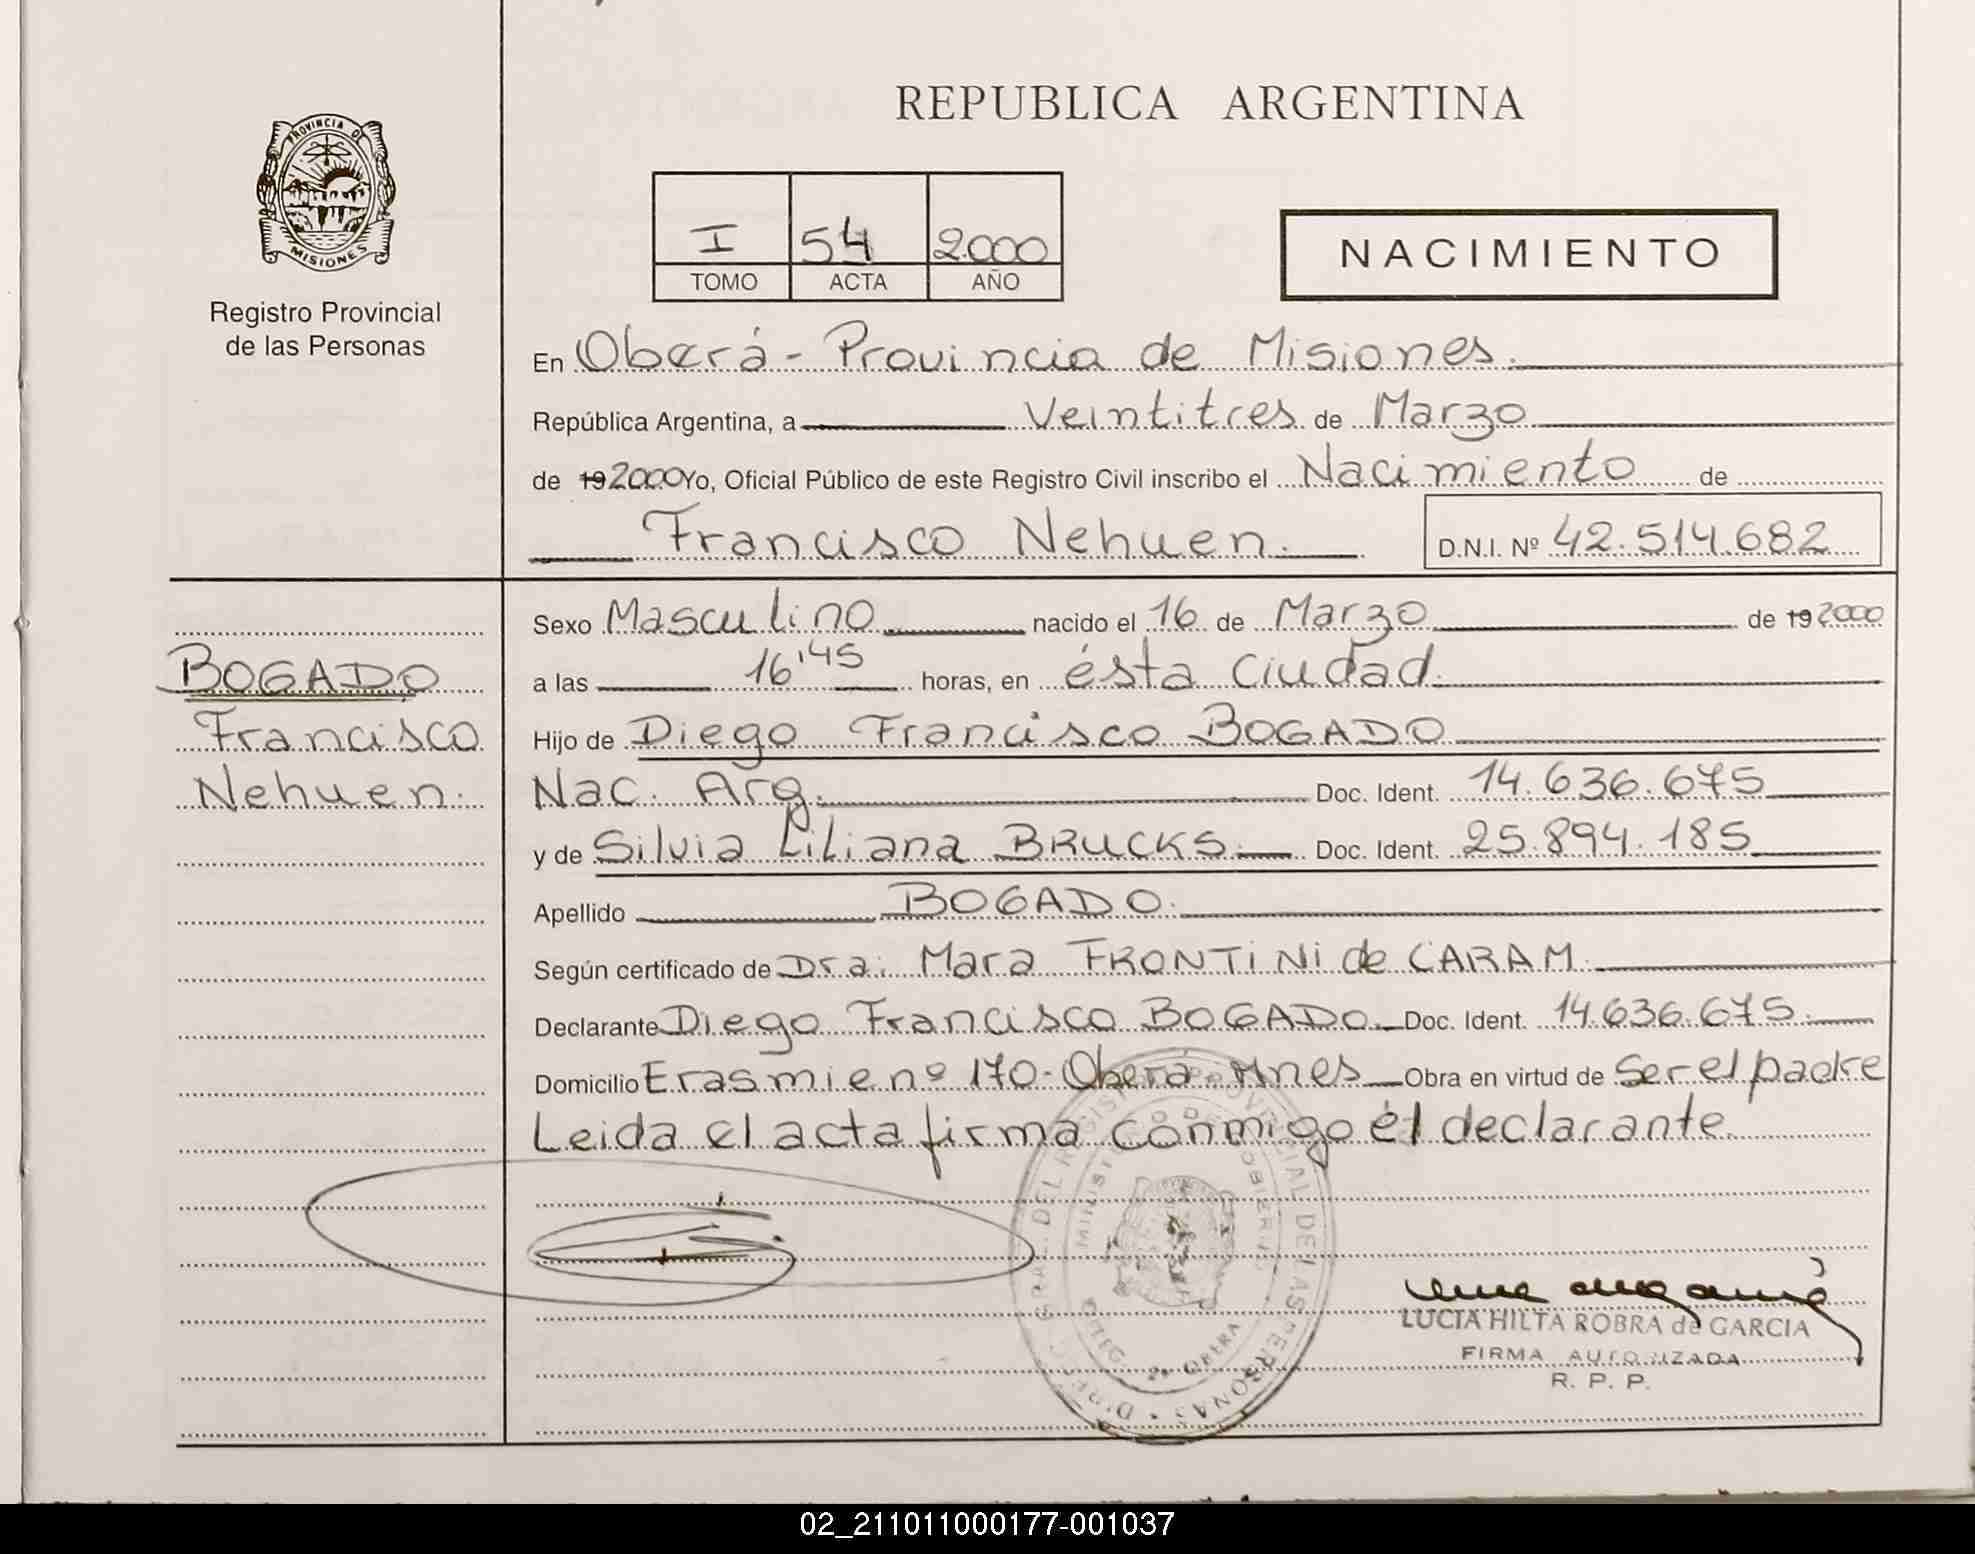 REPUBLICA ARGENTINA
PROVINCIA DE
MISIONES
Registro Provincial
de las Personas
I 54 2000
TOMO ACTA AÑO
NACIMIENTO
En Oberá - Provincia de Misiones.
República Argentina, a Veintitres de Marzo
de 19 2000 Yo, Oficial Público de este Registro Civil inscribo el Nacimiento de
Francisco Nehuen. D.N.I. Nº 42.514.682
BOGADO
Francisco
Nehuen.
Sexo Masculino nacido el 16 de Marzo de 19 2000
a las 16'45 horas, en ésta Ciudad.
Hijo de Diego Francisco BOGADO
Nac. Arg. Doc. Ident. 14.636.675
y de Silvia Liliana BRUCKS. Doc. Ident. 25.894.185
Apellido BOGADO.
Según certificado de Dra. Mara FRONTINI de CARAM.
Declarante Diego Francisco BOGADO. Doc. Ident. 14.636.675.
Domicilio Erasmie nº 170. Oberá Mnes Obra en virtud de Ser el padre
Leida el acta firma conmigo él declarante.
DEL REGISTRO PROVINCIAL DE LAS PERSONAS
MINISTERIO DE GOBIERNO
DELEG. 2ª OBERA
LUCIA HILTA ROBRA de GARCIA
FIRMA AUTORIZADA
R. P. P.
02_211011000177-001037